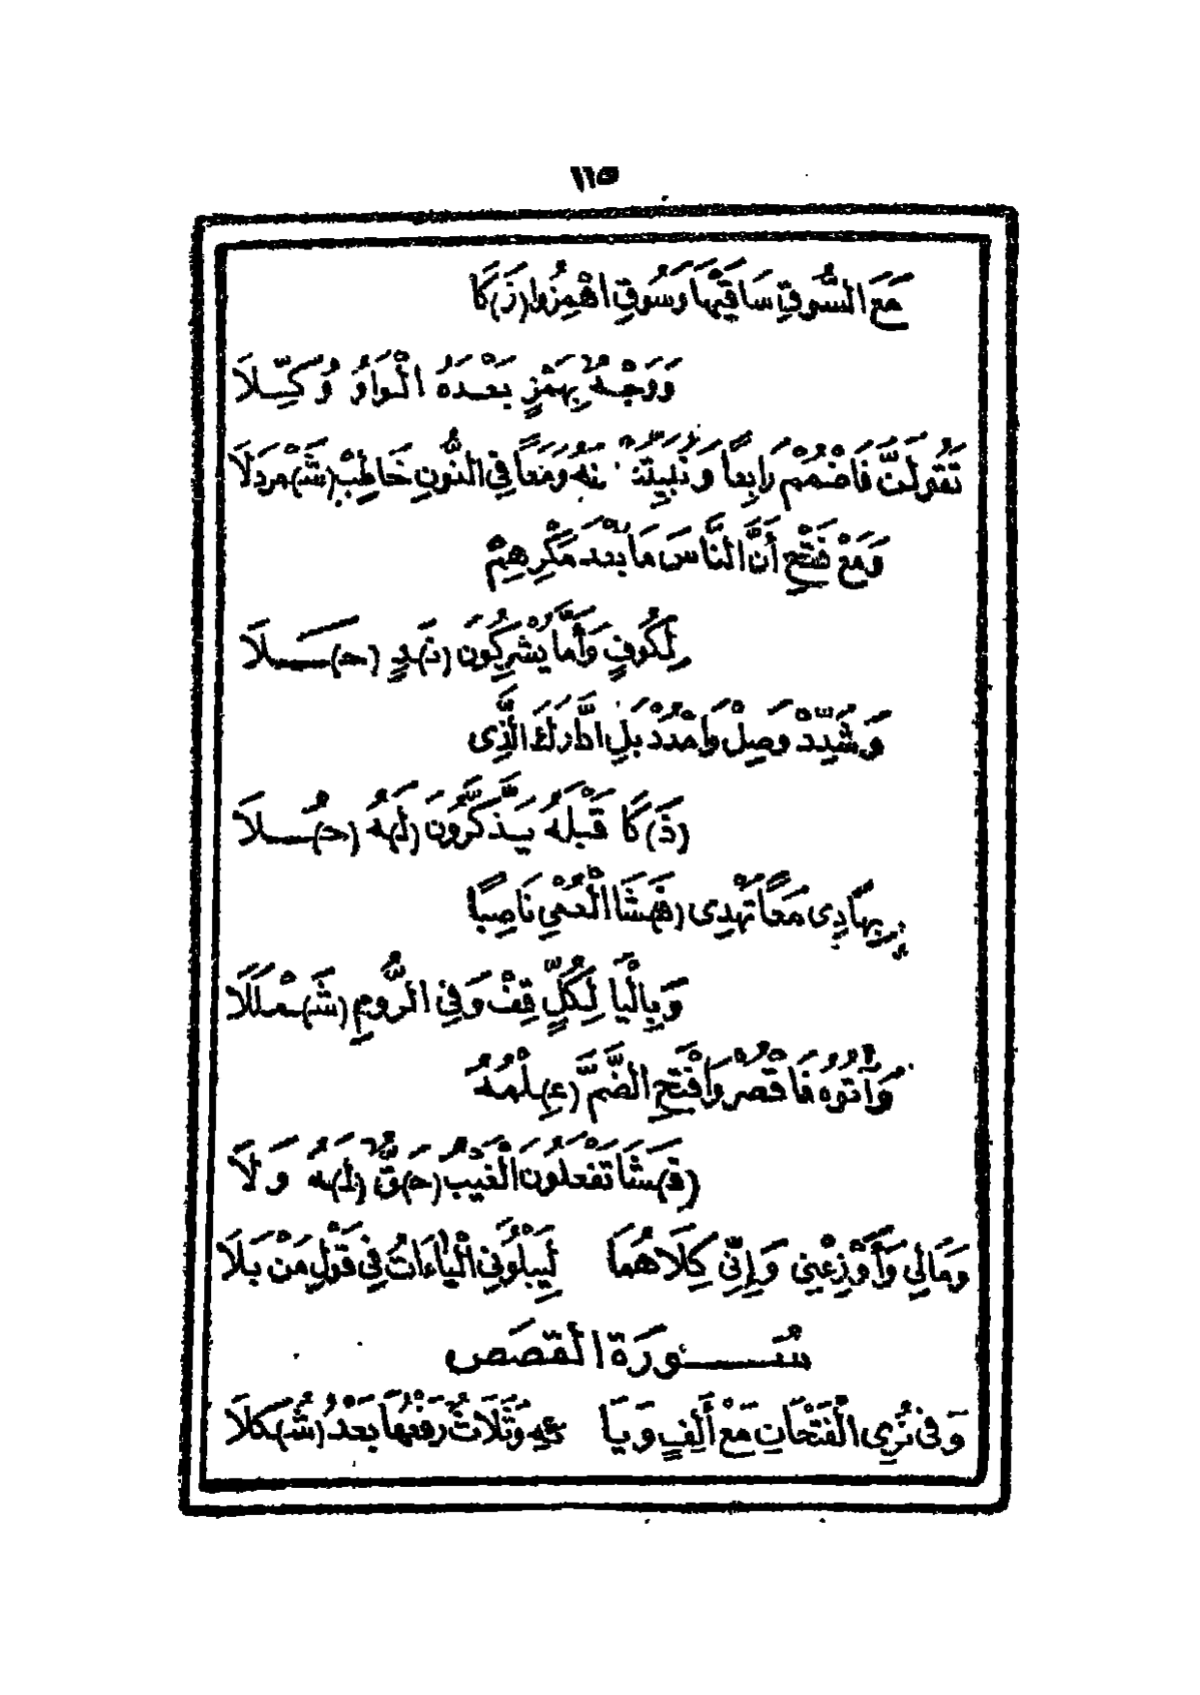 ١١٥
مَعَ السُّوقِ سَاقَيْهَا وَسُوقِ اهْمِزُوا (زَ)كَا
وَوَجْهٌ بِهَمْزٍ بَعْدَهُ الْوَاوُ وُكِّلَا
تَقُولَنَّ فَاضْمُمْ رَابِعًا وَنُبَيِّتَنَّهُ وَمَعًا فِي النُّونِ خَاطِبْ (شَ)مَرْدَلَا
وَمَعْ فَتْحِ أَنَّ النَّاسَ مَا بَعْدَ مَكْرِهِمْ
لِكُوفٍ وَأَمَّا يُشْرِكُونَ (نَ)دٍ (حَ)لَا
وَشَدِّدْ وَصِلْ وَامْدُدْ بَلِ ادَّارَكَ الَّذِى
(ذَ)كَا قَبْلَهُ يَذَّكَّرُونَ (لَ)هُ (حُ)لَا
بِهَادِى مَعًا تَهْدِى (فَ)شَا الْعُمْيِ نَاصِبًا
وَبِالْيَا لِكُلٍّ قِفْ وَفِي الرُّومِ (شَ)مْلَلَا
وَآتُوهُ فَاقْصُرْ وَافْتَحِ الضَّمَّ (عِ)لْمُهُ
(فَ)شَا تَفْعَلُونَ الْغَيْبُ (حَ)قٌّ (لَ)هُ وَلَا
وَمَالِي وَأَوْزِعْنِي وَإِنِّي كِلَاهُمَا لِيَبْلُوَنِي الْيَاءَاتُ فِي قَوْلِ مَنْ بَلَا
سُورَةُ الْقَصَصِ
وَفِي نُرِي الْفَتْحَانِ مَعْ أَلِفٍ وَيَا ئِهِ وَثَلَاثٌ رَفْعُهَا بَعْدُ (شُ)كِّلَا